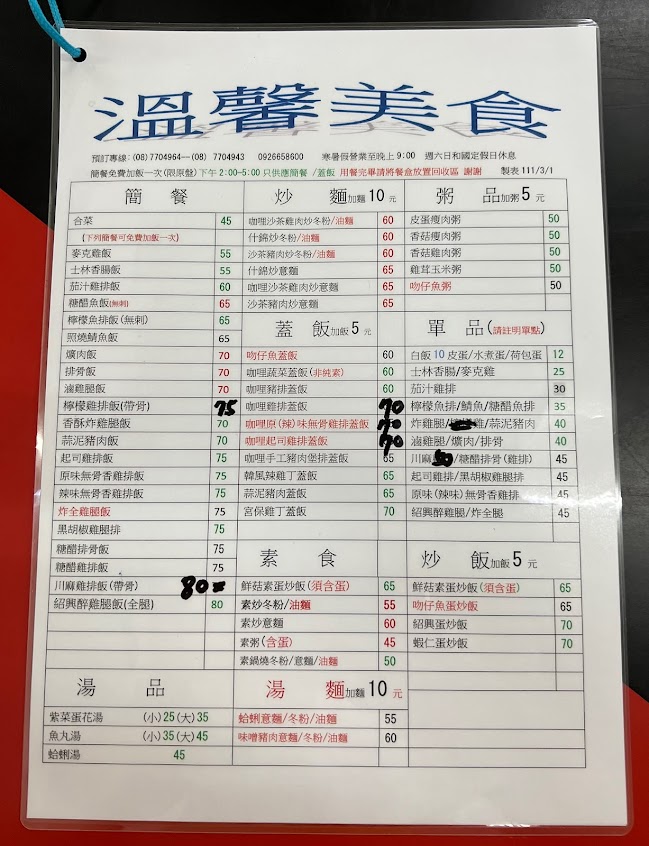 溫馨美食
預訂專線: (08)7704964—(08) 7704943 0926658600 寒暑假營業至晚上9:00 週六日和國定假日休息
簡餐免費加飯一次(限原盤)下午2:00~5:00只供應簡餐/蓋飯 用餐完畢請將餐盒放置回收區 謝謝 製表111/3/1
簡餐
合菜 45
(下列簡餐可免費加飯一次)
麥克雞飯 55
士林香腸飯 55
茄汁雞排飯 60
糖醋魚飯(無刺) 65
檸檬魚排飯(無刺) 65
照燒鯖魚飯 65
爌肉飯 70
排骨飯 70
滷雞腿飯 70
檸檬雞排飯(帶骨) 75
香酥炸雞腿飯 70
蒜泥豬肉飯 70
起司雞排飯 75
原味無骨香雞排飯 75
辣味無骨香雞排飯 75
炸全雞腿飯 75
黑胡椒雞腿排 75
糖醋排骨飯 75
糖醋雞排飯 75
川麻雞排飯(帶骨) 80
紹興醉雞腿飯(全腿) 80
湯品
紫菜蛋花湯 (小)25(大)35
魚丸湯 (小)35(大)45
蛤蜊湯 45
炒麵加麵10元
咖哩沙茶雞肉炒冬粉/油麵 60
什錦炒冬粉/油麵 60
沙茶豬肉炒冬粉/油麵 60
什錦炒意麵 65
咖哩沙茶雞肉炒意麵 65
沙茶豬肉炒意麵 65
蓋飯加飯5元
吻仔魚蓋飯 60
咖哩蔬菜蓋飯(非純素) 60
咖哩豬排蓋飯 60
咖哩雞排蓋飯 70
咖哩原(辣)味無骨雞排蓋飯
咖哩起司雞排蓋飯 70
咖哩手工豬肉堡排蓋飯 65
韓風辣雞丁蓋飯 65
蒜泥豬肉蓋飯 65
宮保雞丁蓋飯 70
素食
鮮菇素蛋炒飯(須含蛋) 65
素炒冬粉/油麵 55
素炒意麵 60
素粥(含蛋) 45
素鍋燒冬粉/意麵/油麵 50
湯麵加麵10元
蛤蜊意麵/冬粉/油麵 55
味噌豬肉意麵/冬粉/油麵 60
粥品加粥5元
皮蛋瘦肉粥 50
香菇瘦肉粥 50
香菇雞肉粥 50
雞茸玉米粥 50
吻仔魚粥 50
單品(請註明單點)
白飯10 皮蛋/水煮蛋/荷包蛋 12
士林香腸/麥克雞 25
茄汁雞排 30
檸檬魚排/鯖魚/糖醋魚排 35
炸雞腿/蒜泥豬肉 40
滷雞腿/爌肉/排骨 40
川麻50/糖醋排骨(雞排) 45
起司雞排/黑胡椒雞腿排 45
原味(辣味)無骨香雞排 45
紹興醉雞腿/炸全腿 45
炒飯加飯5元
鮮菇素蛋炒飯(須含蛋) 65
吻仔魚蛋炒飯 65
紹興蛋炒飯 70
蝦仁蛋炒飯 70